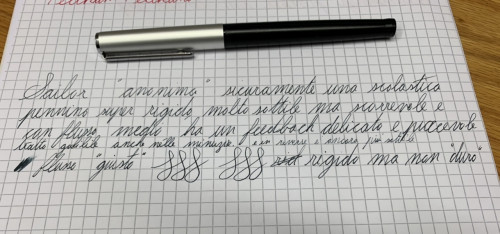 Pelikan Pelikan
Sailor "anonima" sicuramente una scolastica
pennino super rigido, molto sottile ma scorrevole e
con flusso medio ha un feedback delicato e piacevole
tratto godibile anche nelle minuzie. e in reverse è ancora più sottile
flusso "giusto" rigido ma non "duro"